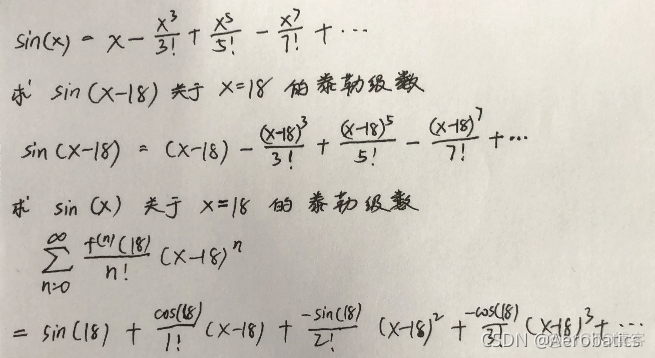 sin(x) = x - x³/3! + x⁵/5! - x⁷/7! + ⋯
求 sin(x-18) 关于 x=18 的泰勒级数
sin(x-18) = (x-18) - (x-18)³/3! + (x-18)⁵/5! - (x-18)⁷/7! + ⋯
求 sin(x) 关于 x=18 的泰勒级数
∞∑n=0 f⁽ⁿ⁾(18)/n! (x-18)ⁿ
= sin(18) + cos(18)/1! (x-18) + -sin(18)/2! (x-18)² + -cos(18)/3! (x-18)³ + ⋯
CSDN @Aerobatics